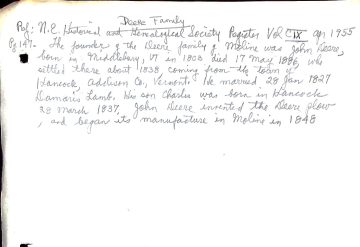 Deere Family
Ref: N.E. Historical and Genealogical Society Register Vol CIX Apr 1955
Pg 147. The founder of the Deere family of Moline was John Deere,
born in Middlebury, VT in 1803 died 17 May 1886, who
settled there about 1838, coming from the town of
Hancock, Addison Co, Vermont. He married 28 Jan 1827
Damaris Lamb. His son Charles was born in Hancock
28 March 1837, John Deere invented the Deere plow
, and began its manufacture in Moline in 1848